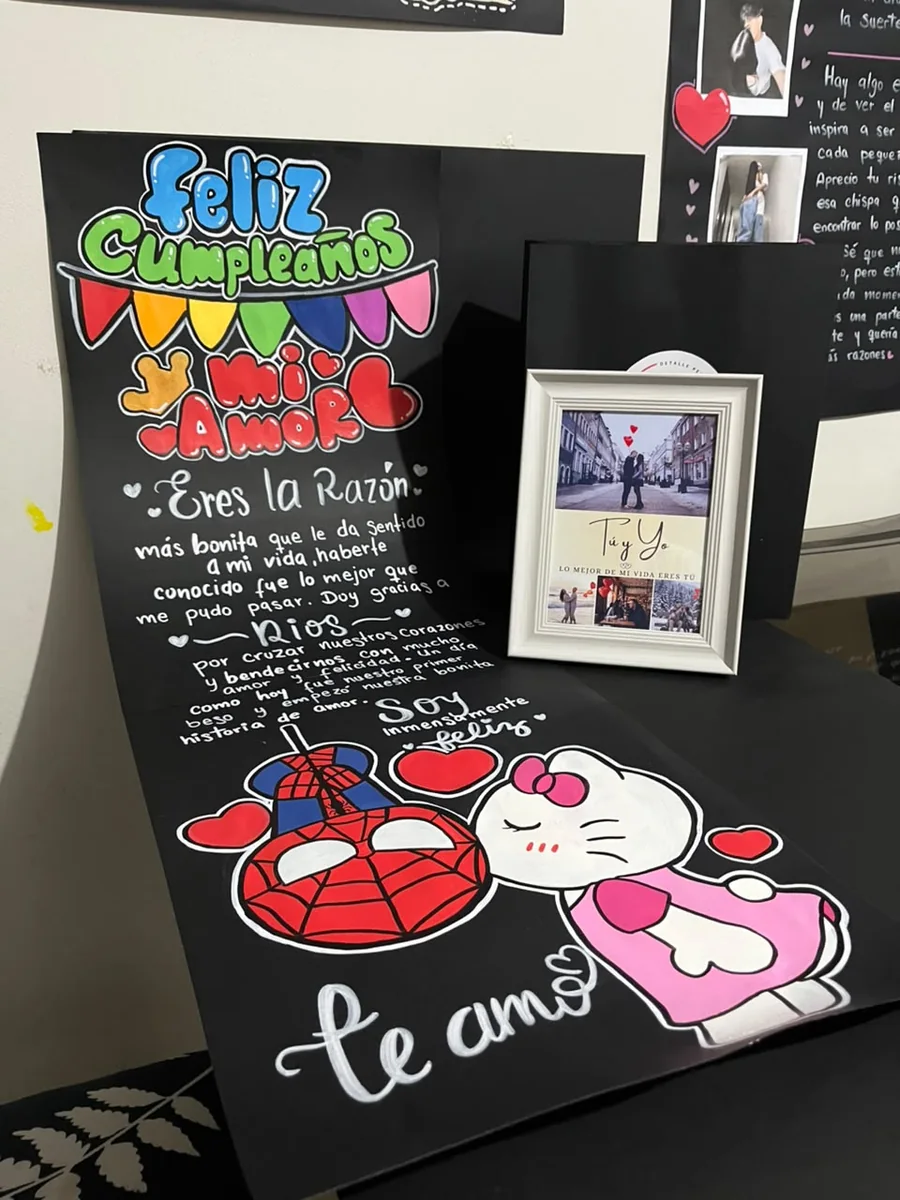 feliz
Cumpleaños
y mi
Amor
Eres la Razón
más bonita que le da sentido
a mi vida, haberte
conocido fue lo mejor que
me pudo pasar. Doy gracias a
Dios
por cruzar nuestros corazones
y bendecirnos con mucho
amor y felicidad. Un día
como hoy fue nuestro primer
beso y empezó nuestra bonita
historia de amor. Soy
Inmensamente
feliz
te amo
DETALLE
Tú y Yo
LO MEJOR DE MI VIDA ERES TÚ
la suerte
Hay algo e
y de ver el
inspira a ser
cada peque
Aprecio tu ri
esa chispa q
encontrar lo pos
sé que n
o, pero est
ida mome
s una parte
te y quería
ás razones